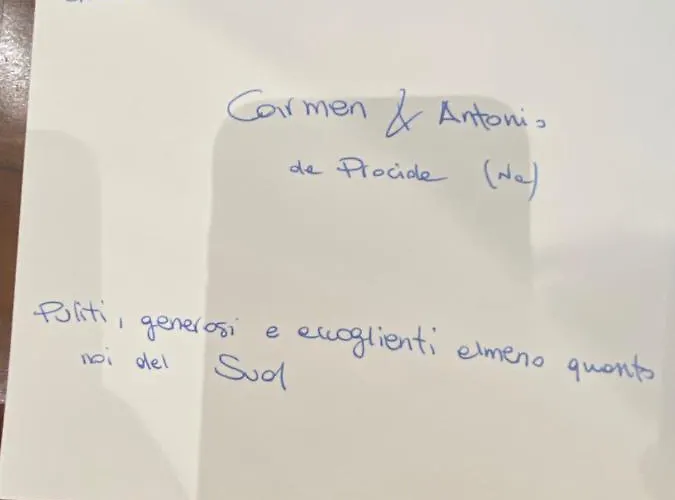 Carmen & Antonio
da Procida (Na)
Puliti, generosi e accoglienti almeno quanto
noi del Sud